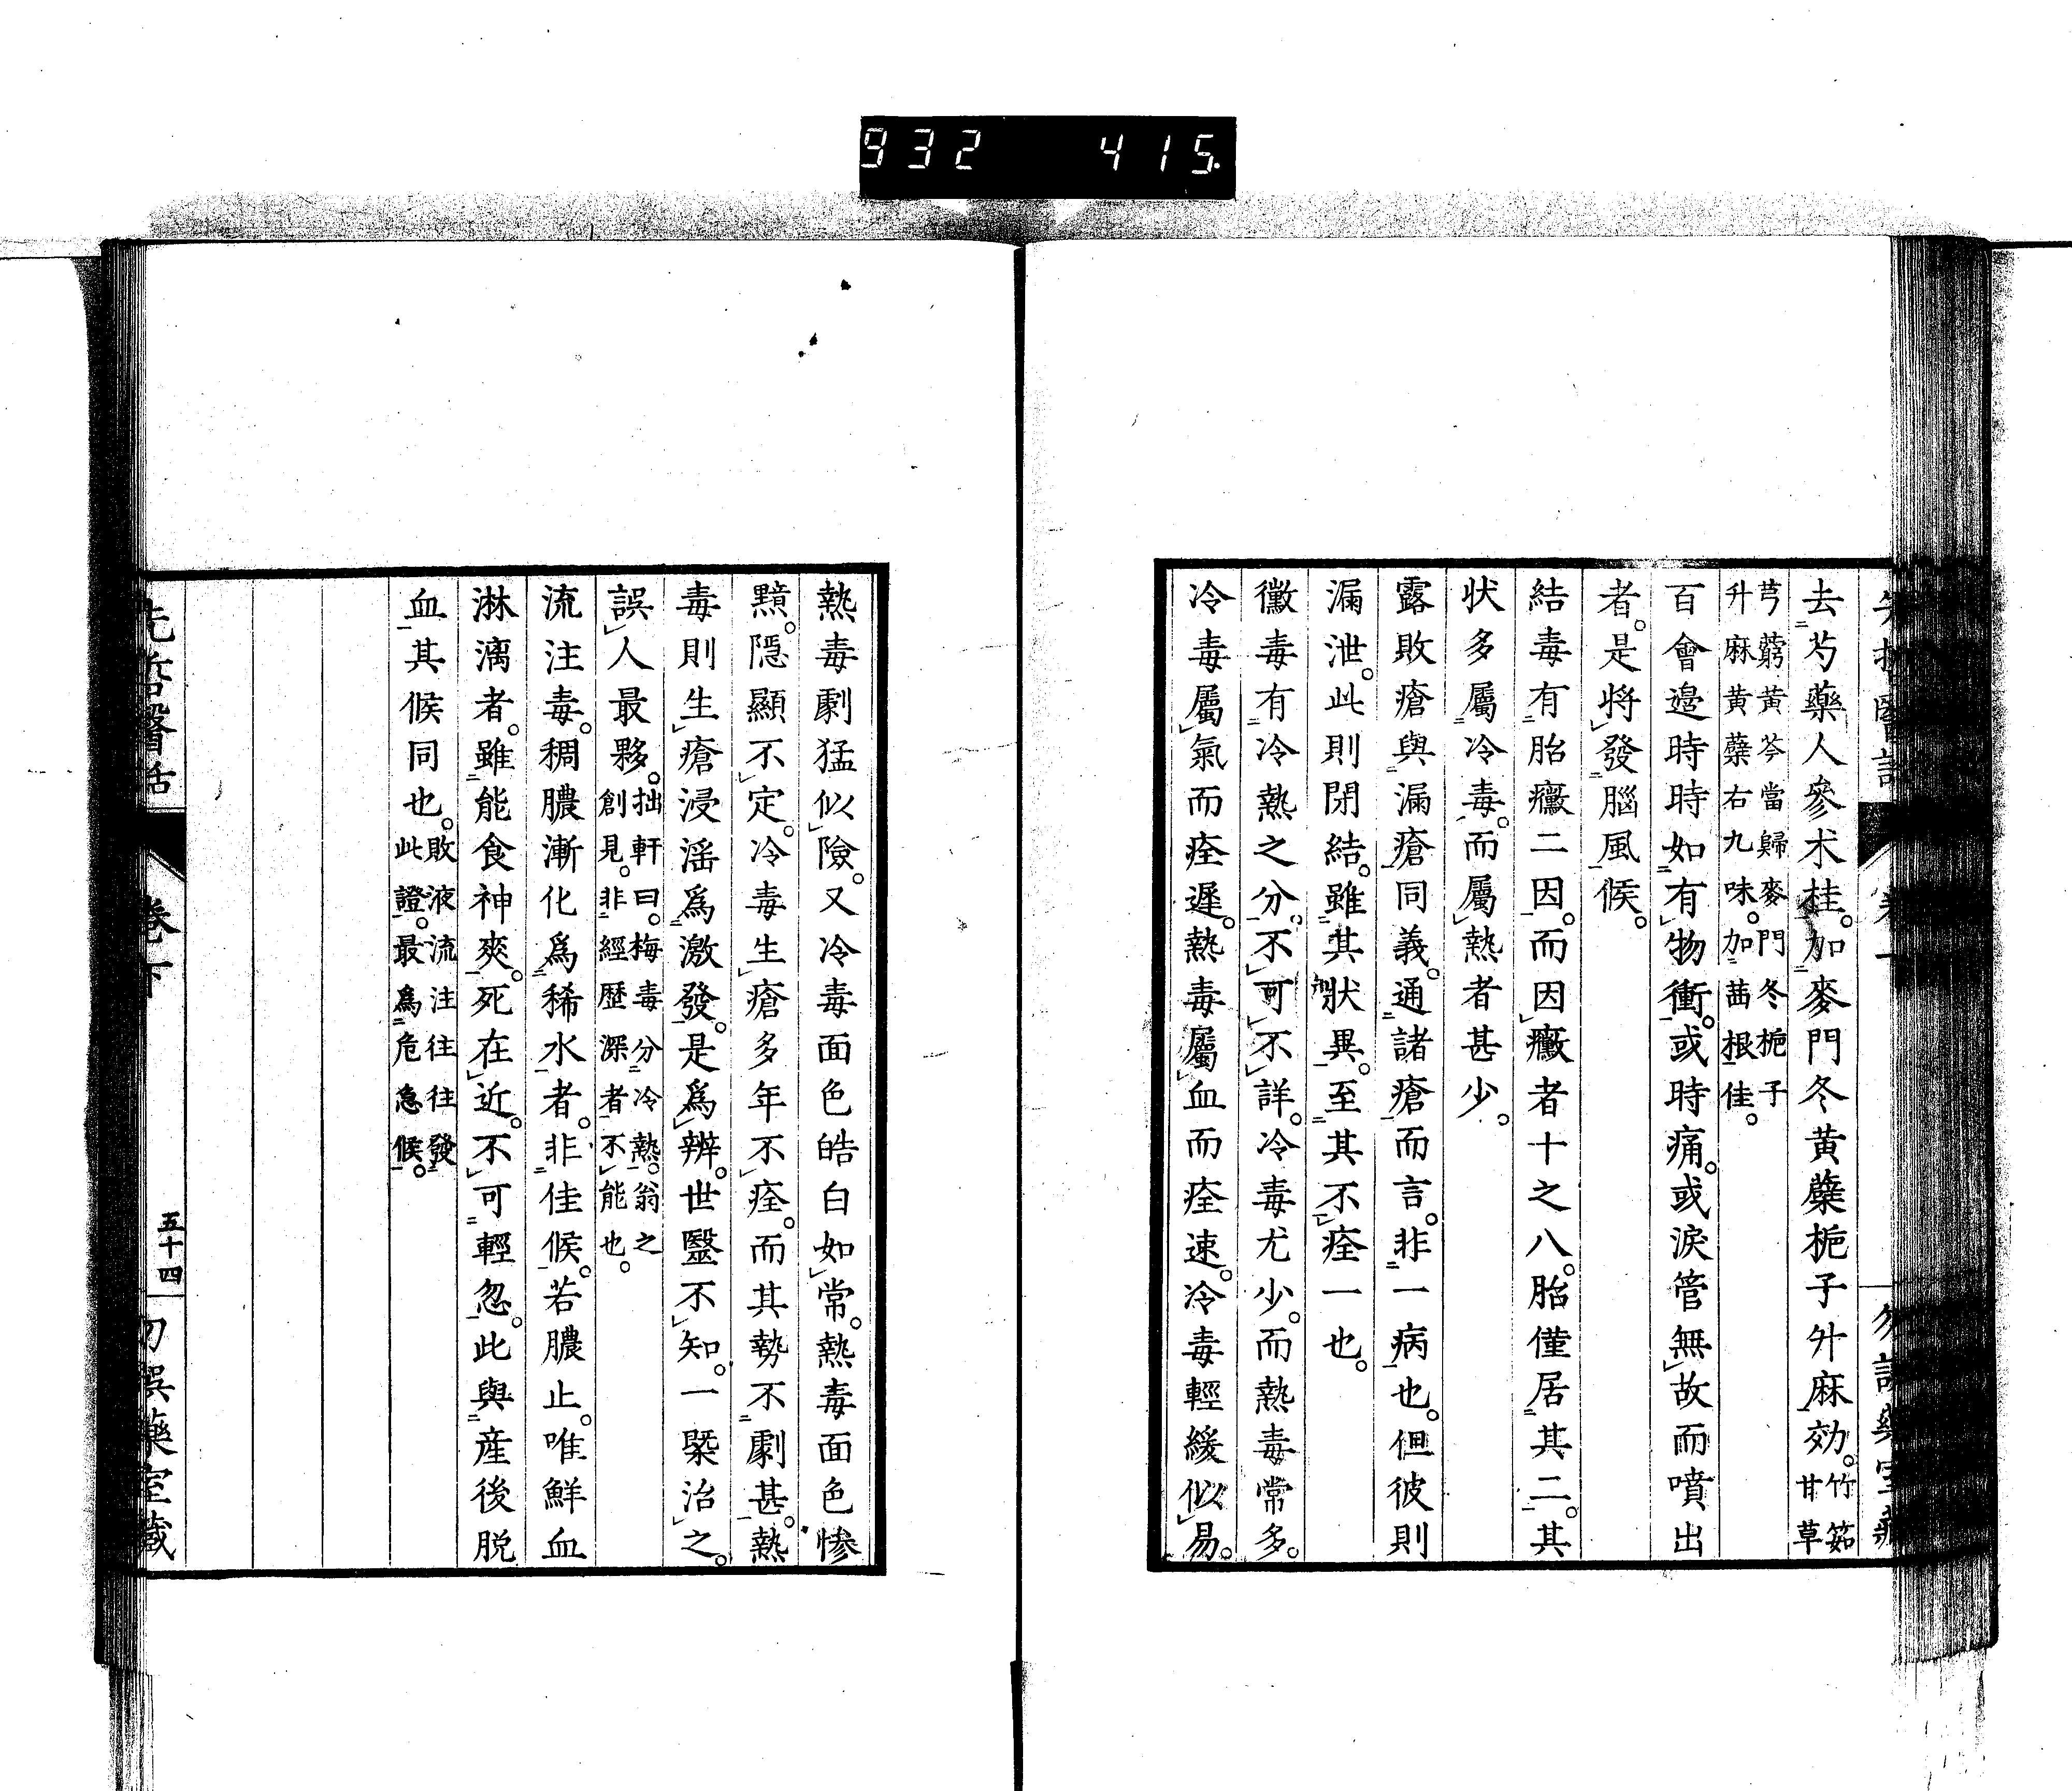 932 415
去芍藥人參朮桂。加麥門冬黄蘗梔子升麻効。竹茹甘草
芎藭黄芩當歸麥門冬梔子
升麻黄蘗右九味。加茜根佳。
百會邊時時如有物衝。或時痛。或淚管無故而噴出
者。是將發腦風候。
結毒有胎黴二因。而因黴者十之八。胎僅居其二。其
状多屬冷毒。而屬熱者甚少。
露敗瘡與漏瘡同義。通諸瘡而言。非一病也。但彼則
漏泄。此則閉結。雖其狀異。至其不痊一也。
黴毒有冷熱之分。不可不詳。冷毒尤少。而熱毒常多。
冷毒屬氣而痊遲。熱毒屬血而痊速。冷毒輕緩似易。
熱毒劇猛似險。又冷毒面色皓白如常。熱毒面色慘
黷。隱顯不定。冷毒生瘡多年不痊。而其勢不劇甚。熱
毒則生瘡浸淫爲激發。是爲辨。世醫不知。一槩治之。
誤人最夥。拙軒曰。梅毒分冷熱。翁之
創見。非經歴深者不能也。
流注毒。稠膿漸化爲稀水者。非佳候。若膿止。唯鮮血
淋漓者。雖能食神爽。死在近。不可輕忽。此與産後脱
血其候同也。敗液流注往往發
此證。最爲危急候。
先哲醫話
卷下
五十四
勿誤藥室藏